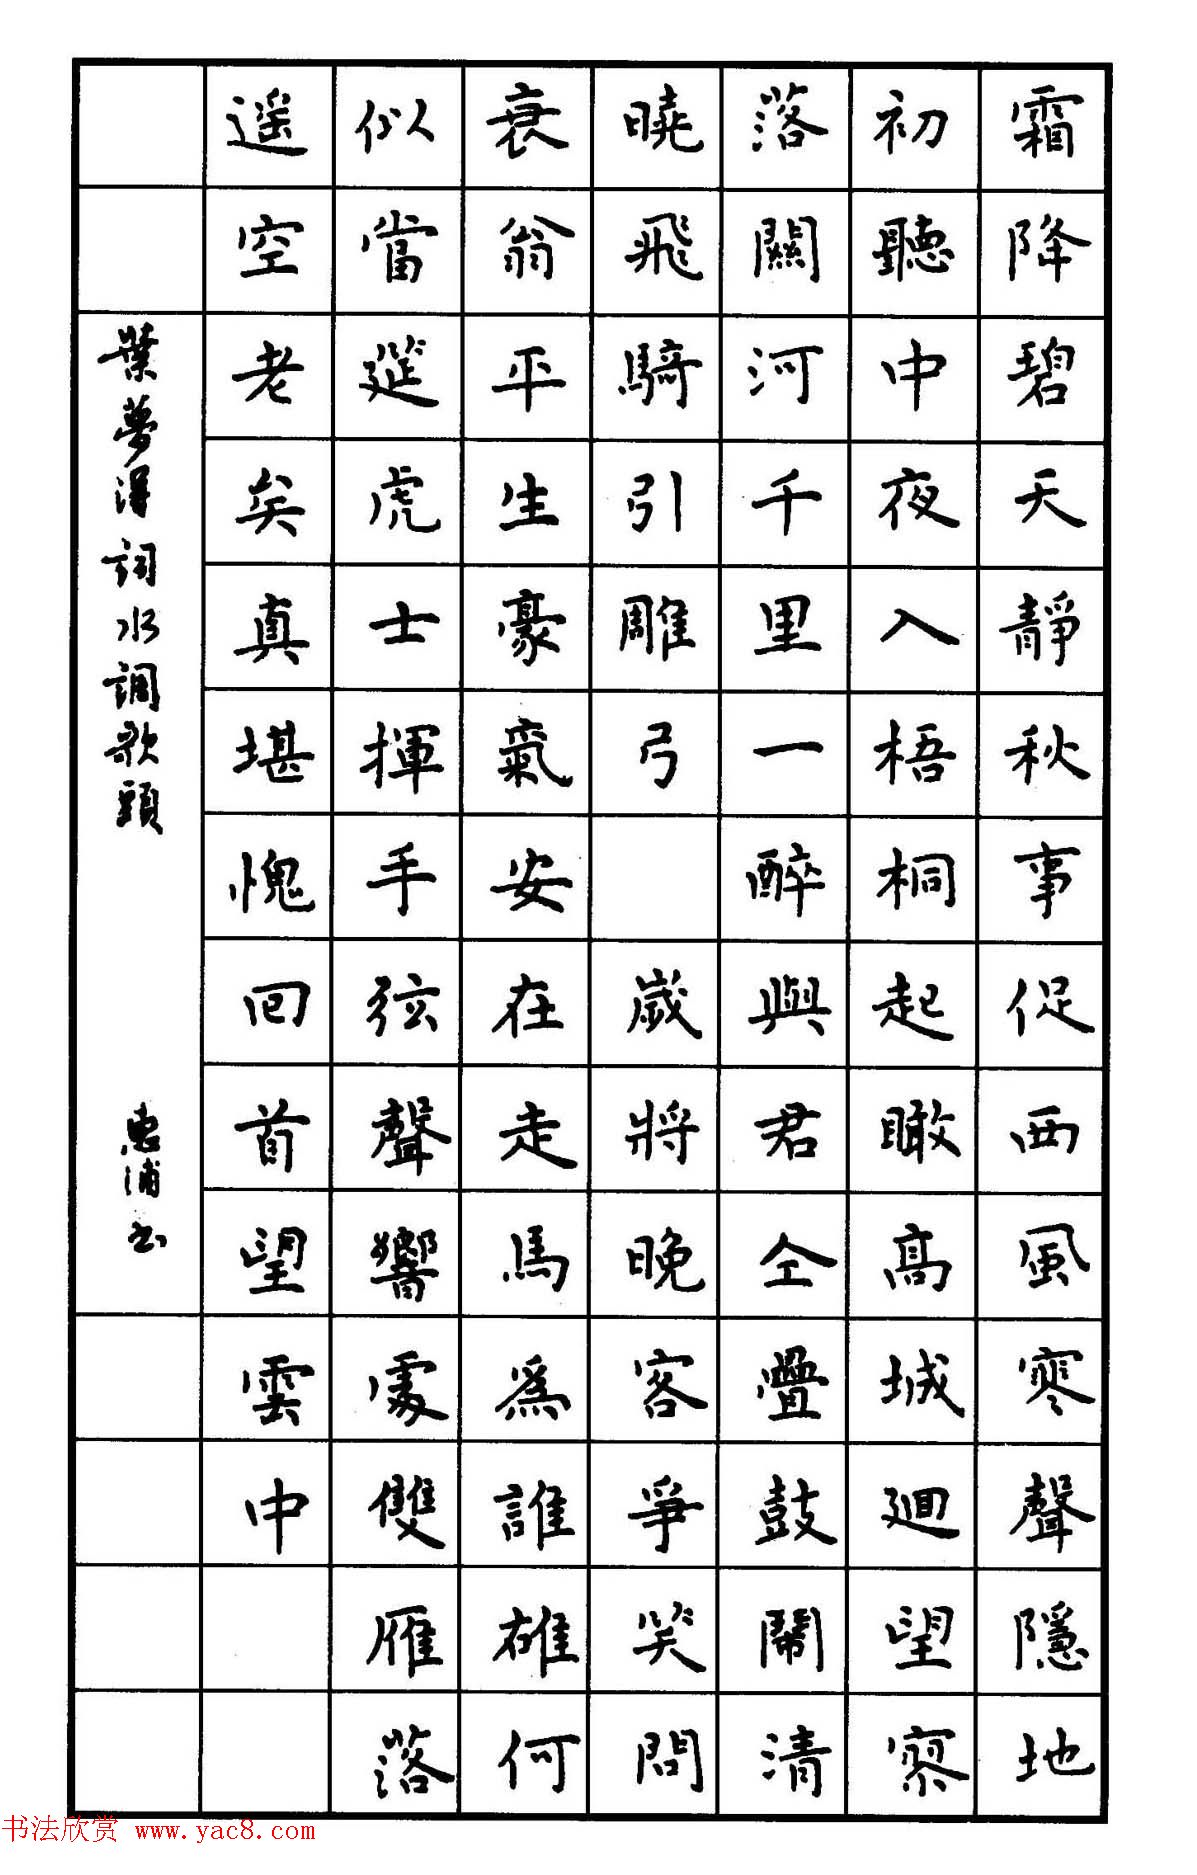 霜降碧天靜秋事促西風寒聲隱地
初聽中夜入梧桐起瞰高城迴望寥
落關河千里一醉與君仝疊鼓鬧清
曉飛騎引雕弓 歲將晚客爭笑問
衰翁平生豪氣安在走馬爲誰雄何
似當筵虎士揮手弦聲響處雙雁落
遥空老矣真堪愧回首望雲中
葉夢得詞水調歌頭 惠浦书
书法欣赏 www.yac8.com